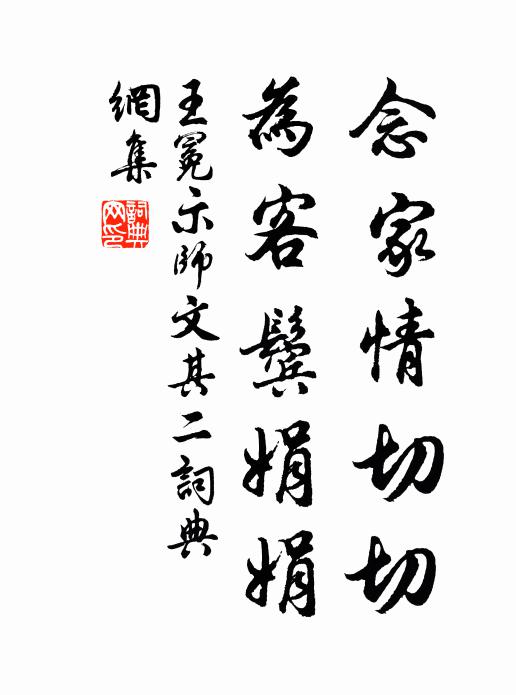 念家情切切
為客鬓娟娟
王冕示師文其二詞典
網集
詞典網印